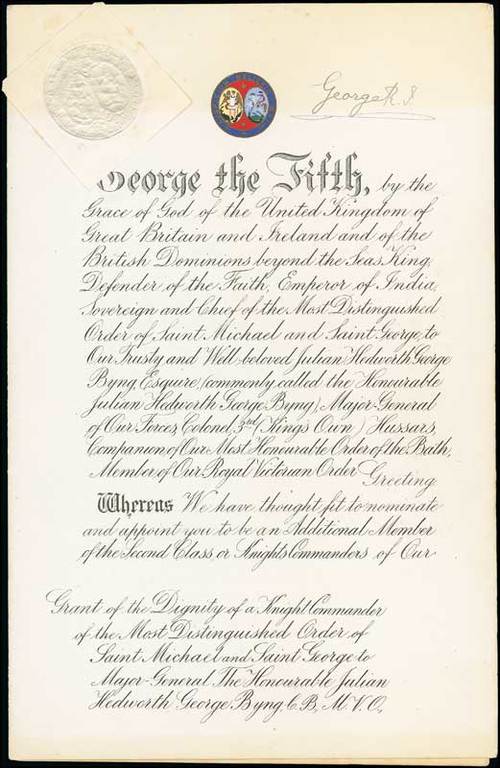 George R.I.
George the Fifth, by the
Grace of God of the United Kingdom of
Great Britain and Ireland and of the
British Dominions beyond the Seas King,
Defender of the Faith, Emperor of India,
Sovereign and Chief of the Most Distinguished
Order of Saint Michael and Saint George, to
Our Trusty and Well-beloved Julian Hedworth George
Byng, Esquire, (commonly called the Honourable
Julian Hedworth George Byng), Major-General
of Our Forces, Colonel 3rd (King's Own) Hussars,
Companion of Our Most Honourable Order of the Bath,
Member of Our Royal Victorian Order Greeting
Whereas We have thought fit to nominate
and appoint you to be an Additional Member
of the Second Class, or Knights Commanders of Our
Grant of the Dignity of a Knight Commander
of the Most Distinguished Order of
Saint Michael and Saint George to
Major-General The Honourable Julian
Hedworth George Byng, C.B., M.V.O.,